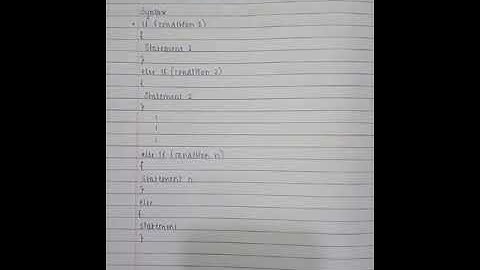 Syntax
• if (condition 1)
{
Statement 1
}
else if (condition 2)
{
Statement 2
}
else if (condition n)
{
Statement n
}
else
{
Statement
}